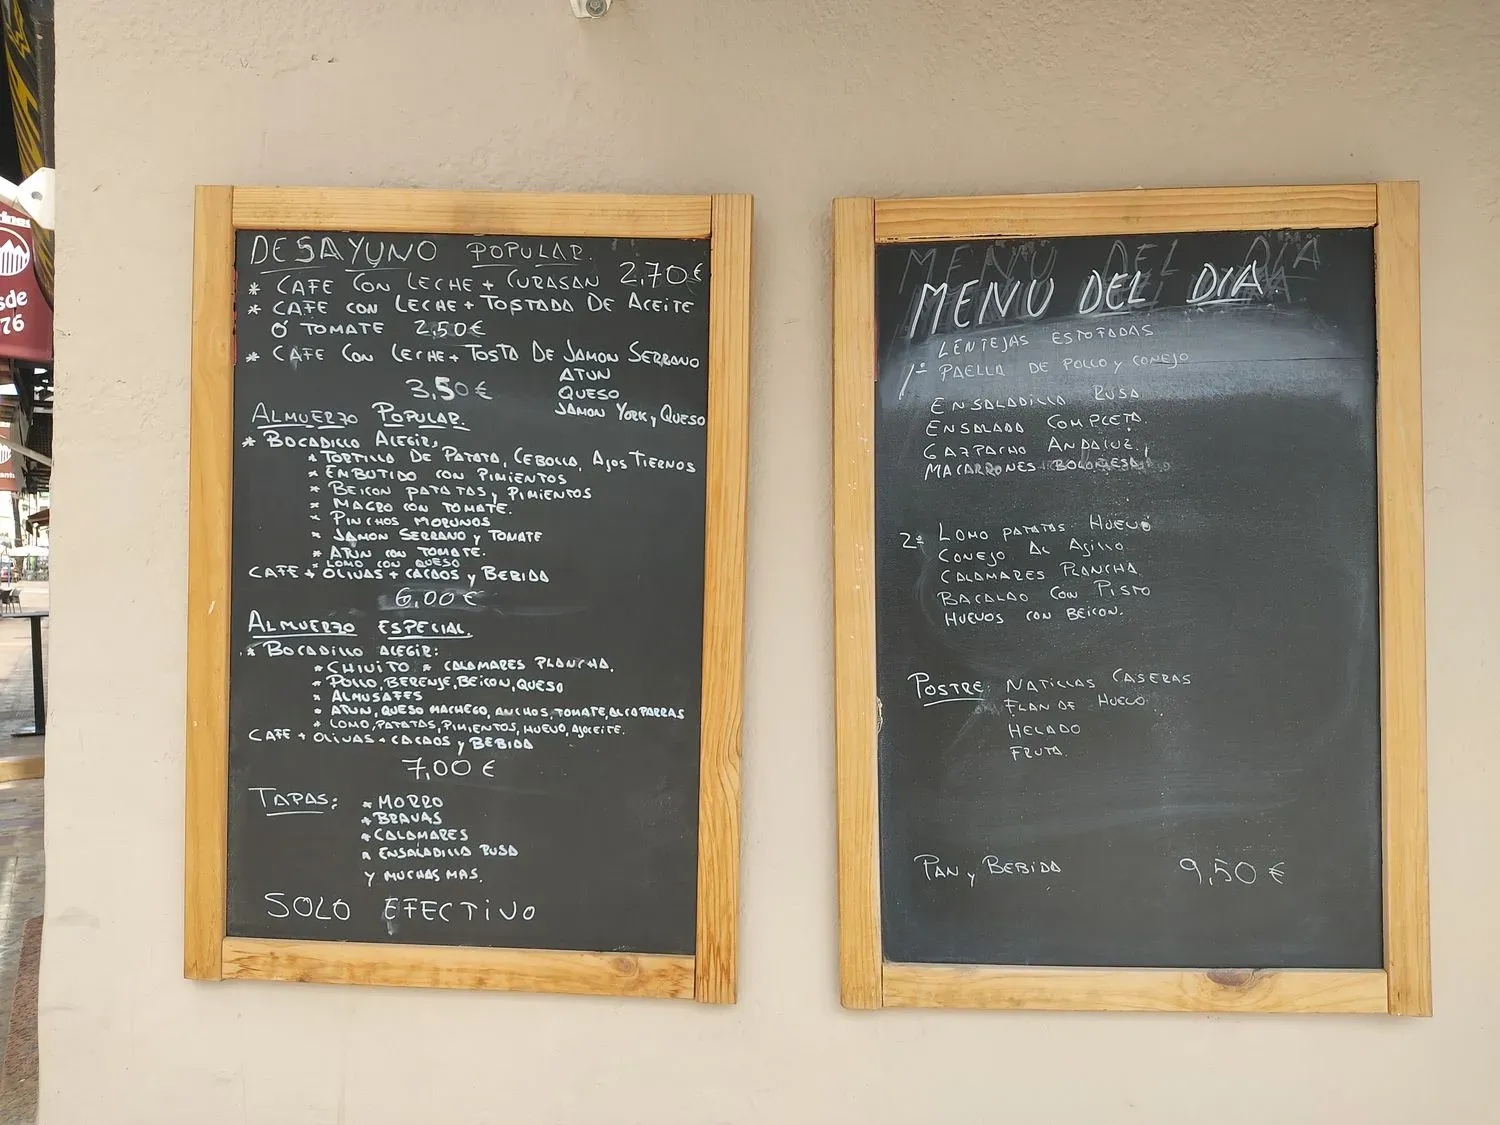 DESAYUNO POPULAR.
* CAFE CON LECHE + CURASAN 2,70€
* CAFE CON LECHE + TOSTADA DE ACEITE
Ó TOMATE 2,50€
* CAFE CON LECHE + TOSTA DE JAMON SERRANO
ATUN
3,50€ QUESO
JAMON YORK y QUESO
ALMUERZO POPULAR.
* BOCADILLO ALEGIR:
* TORTILLA DE PATATA, CEBOLLA, AJOS TIERNOS
* EMBUTIDO CON PIMIENTOS
* BEICON PATATAS y PIMIENTOS
* MAGRO CON TOMATE.
* PINCHOS MORUNOS
* JAMON SERRANO y TOMATE
* ATUN CON TOMATE.
* LOMO CON QUESO
CAFE + OLIVAS + CACAOS y BEBIDA
6,00€
ALMUERZO ESPECIAL.
* BOCADILLO ALEGIR:
* CHIVITO * CALAMARES PLANCHA.
* POLLO, BERENJE, BEICON, QUESO
* ALMUSAFES
* ATUN, QUESO MACHEGO, ANCHOS, TOMATE, ALCAPARRAS
* LOMO, PATATAS, PIMIENTOS, HUEVO, AJOCEITE.
CAFE + OLIVAS + CACAOS y BEBIDA
7,00 €
TAPAS: * MORRO
* BRAVAS
* CALAMARES
* ENSALADILLA RUSA
Y MUCHAS MAS.
SOLO EFECTIVO
MENU DEL DIA
MENU DEL DIA
LENTEJAS ESTOFADAS
1º PAELLA DE POLLO y CONEJO
ENSALADILLA RUSA
ENSALADA COMPLETA.
GAZPACHO ANDALUZ
MACARRONES BOLOÑESA
2º LOMO PATATAS HUEVO
CONEJO AL AJILLO
CALAMARES PLANCHA
BACALAO CON PISTO
HUEVOS CON BEICON.
POSTRE: NATILLAS CASERAS
FLAN DE HUEVO
HELADO
FRUTA.
PAN y BEBIDA 9,50 €
sde
76